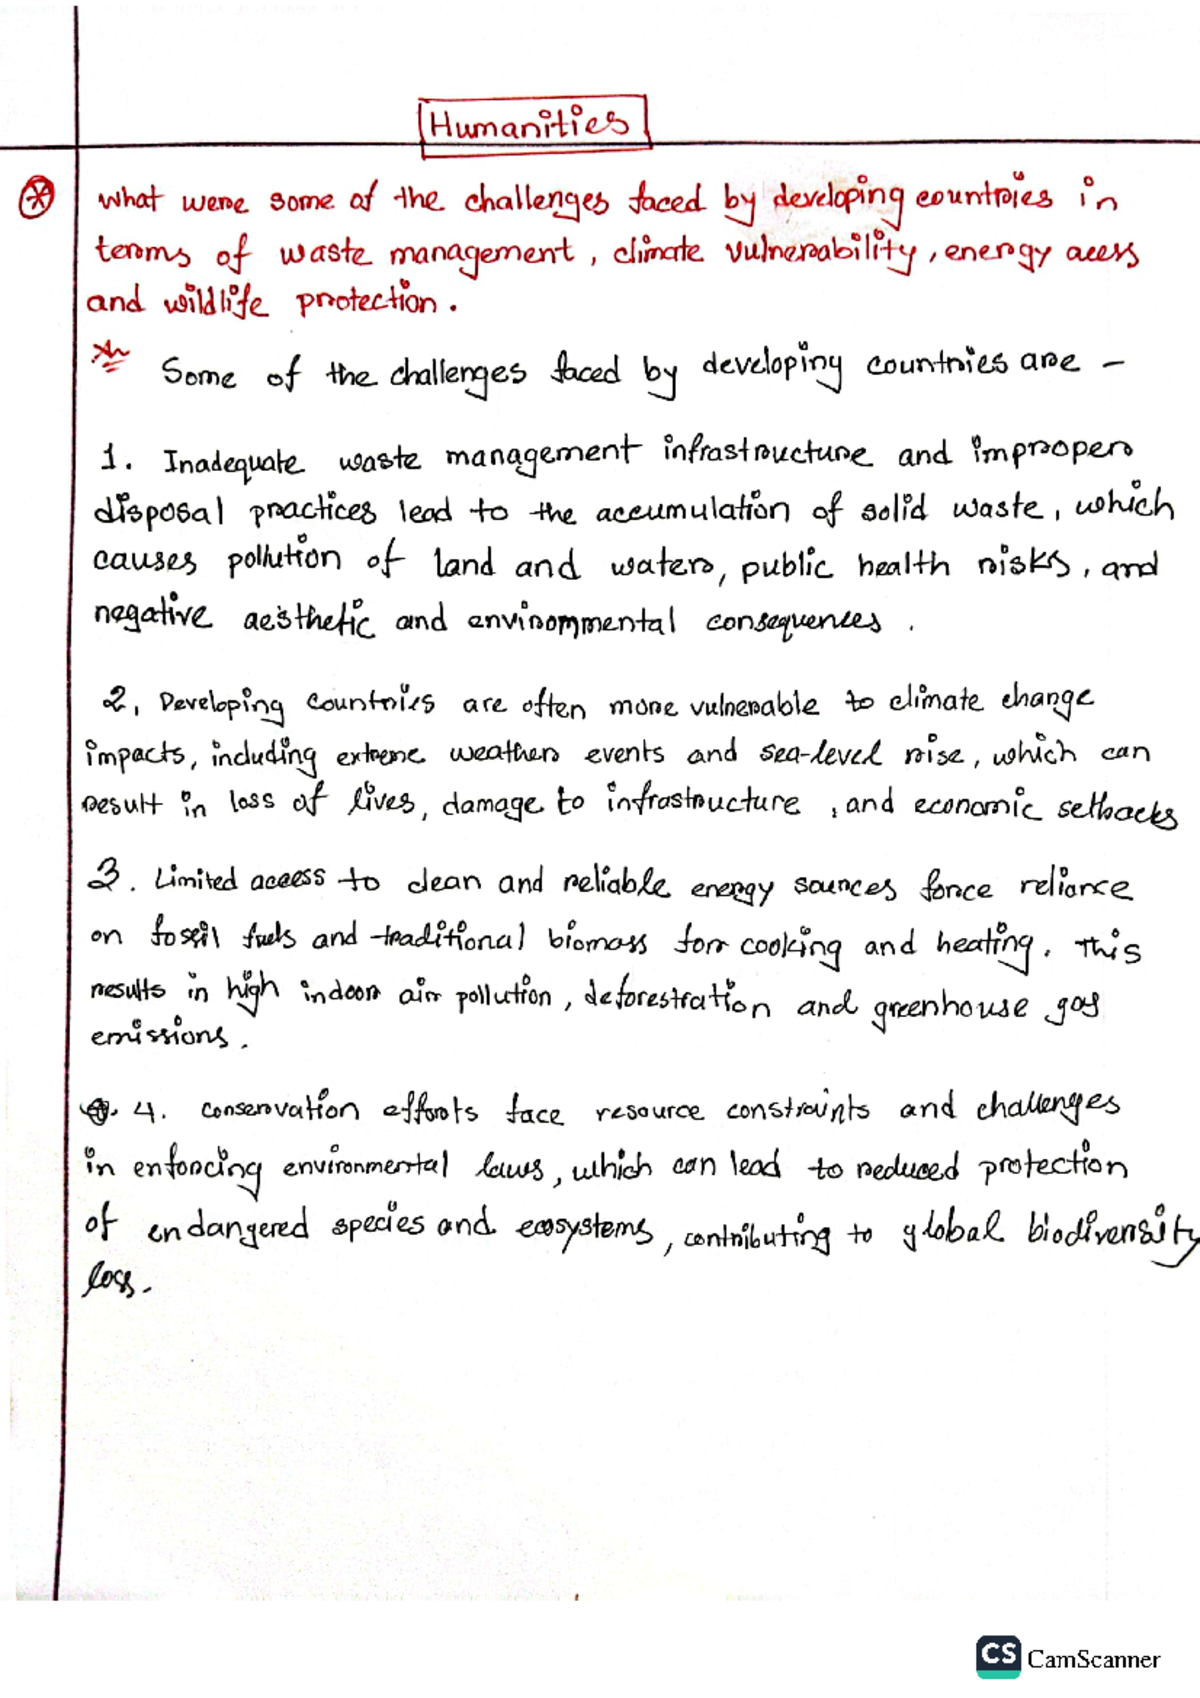 Humanities
what were some of the challenges faced by developing countries in
terms of waste management, climate vulnerability, energy acess
and wildlife protection.
Some of the challenges faced by developing countries are –
1. Inadequate waste management infrastructure and improper
disposal practices lead to the accumulation of solid waste, which
causes pollution of land and water, public health risks, and
negative aesthetic and environmental consequences.
2, Developing countries are often more vulnerable to climate change
impacts, including extreme weather events and sea-level rise, which can
result in loss of lives, damage to infrastructure, and economic setbacks
3. Limited access to clean and reliable energy sources force reliance
on fossil fuels and traditional biomass for cooking and heating. This
results in high indoor air pollution, deforestration and greenhouse gas
emissions.
4. conservation efforts face resource constraints and challenges
in enforcing environmental laws, which can lead to reduced protection
of endangered species and ecosystems, contributing to global biodiversity
loss.
CS CamScanner